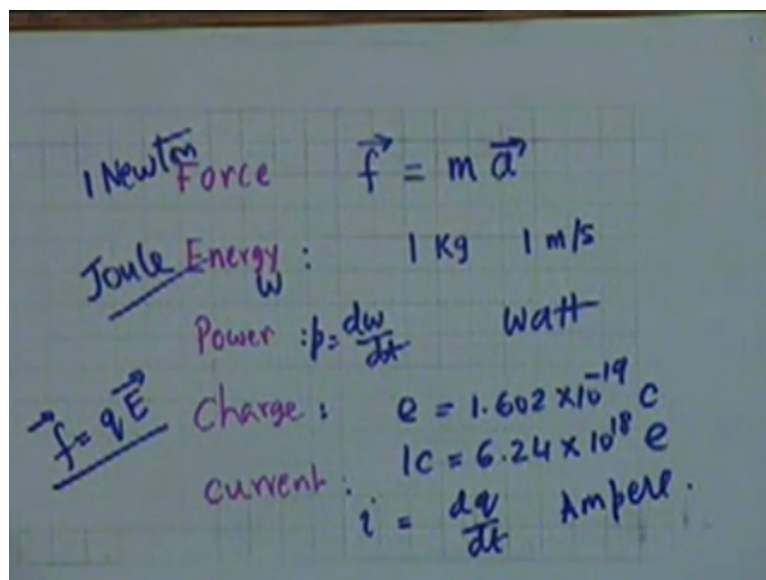 1 Newton Force f⃗ = m a⃗
Joule Energy : 1 Kg 1 m/s
W
Power : p = dw/dt Watt
f⃗ = q E⃗ Charge : e = 1.602 × 10⁻¹⁹ C
1C = 6.24 × 10¹⁸ e
Current :
i = dq/dt Ampere.